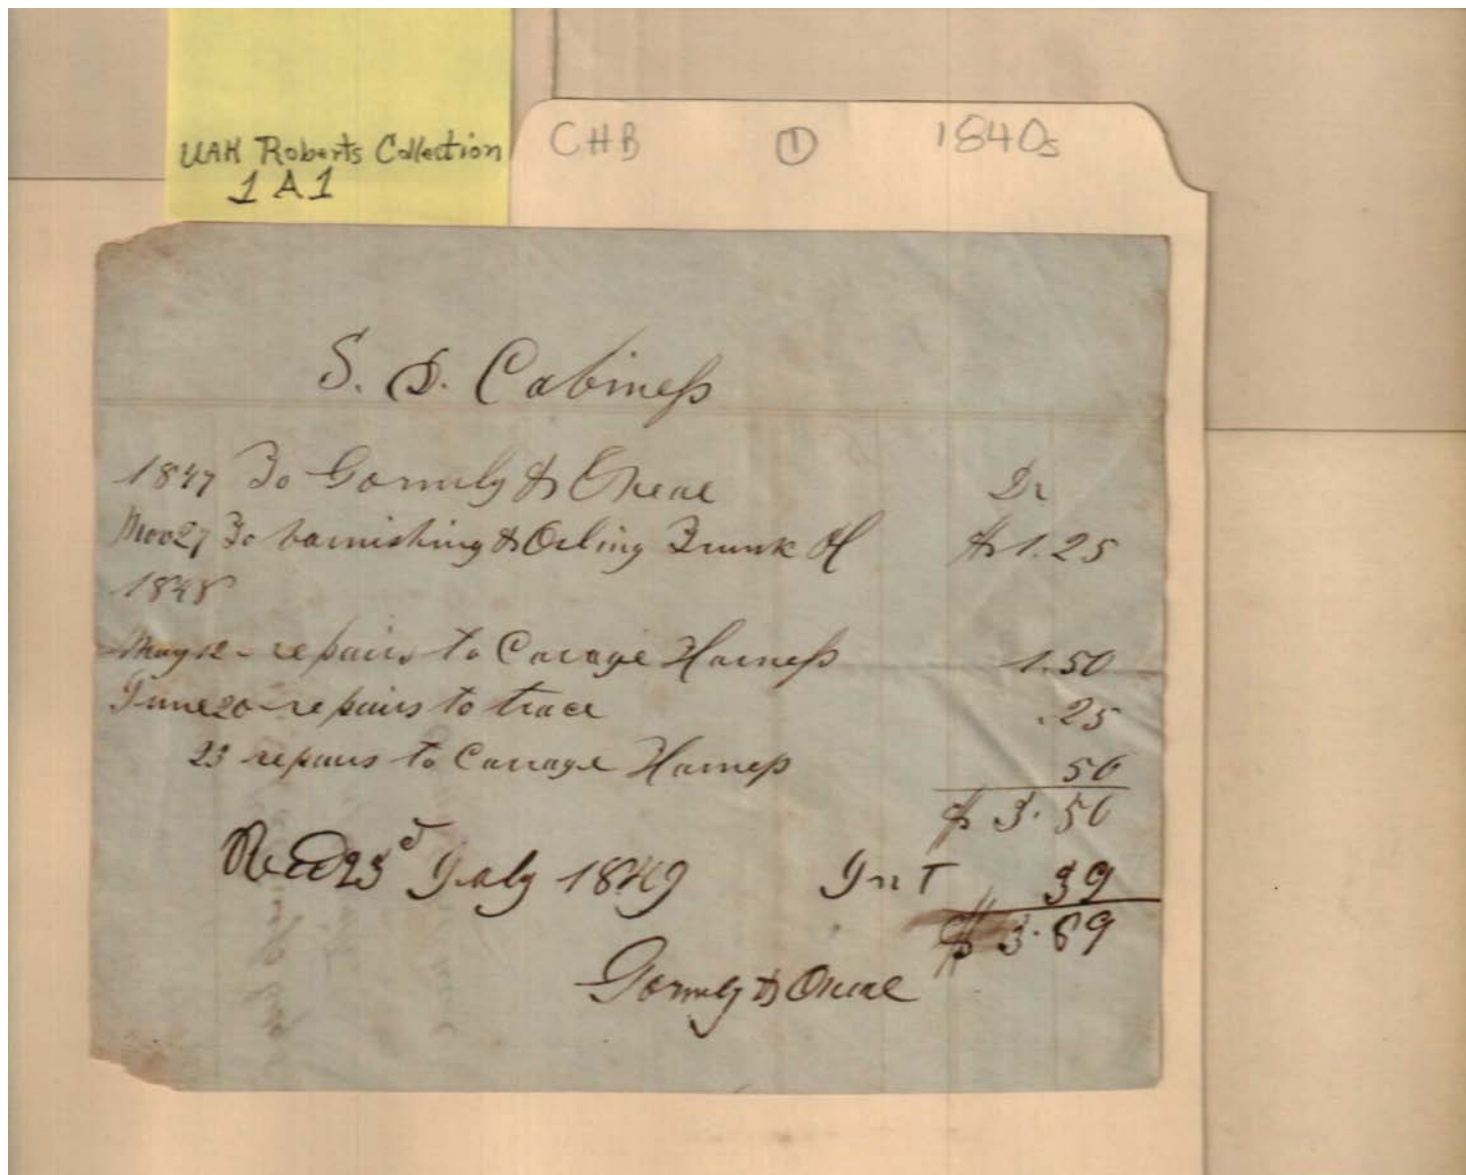 UAH Roberts Collection
1 A 1
CHB ① 1840s
S. D. Cabiness
1847 To Gormly & Oneal Dr
Nov 27 To varnishing & Oiling Trunk $1.25
1848
May 12 - repairs to Carage Harness 1.50
June 20 - repairs to trace .25
23 repairs to Carrage Harness 50
$ 3.50
Recd 23d July 1849 Int 39
$ 3.89
Gormly & Oneal